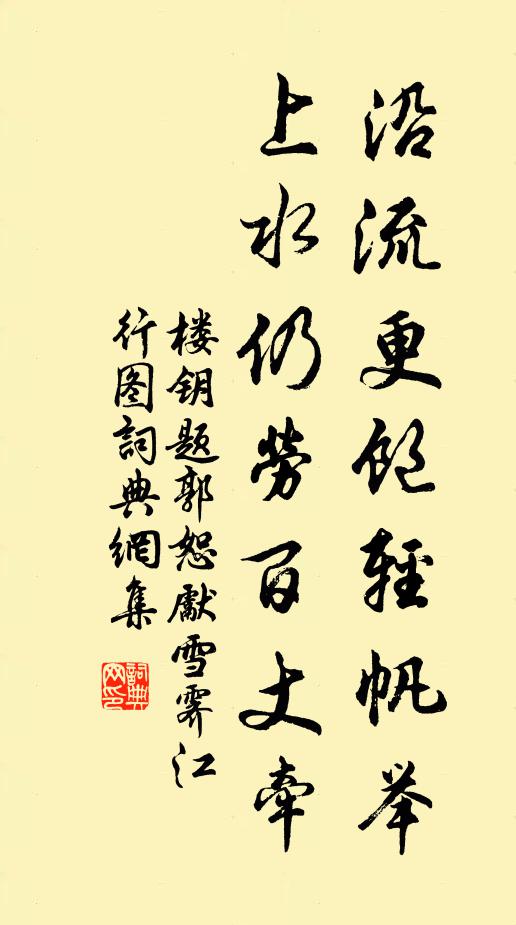 沿流更飽輕帆举
上水仍勞百丈牵
楼钥题郭恕獻雪霁江
行图詞典網集
詞典
网印